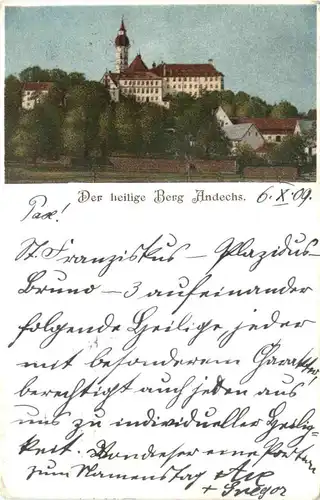 Der heilige Berg Andechs. 6.X.09.
Pax!
St. Franziskus – Plazidus-
Bruno – 3 aufeinander
folgende Heilige, jeder
mit besonderem Charakter,
berechtigt auch jeden aus
uns zu individueller Heilig-
keit. Von dieser eine Portion
zum Namenstag
+ Gregor